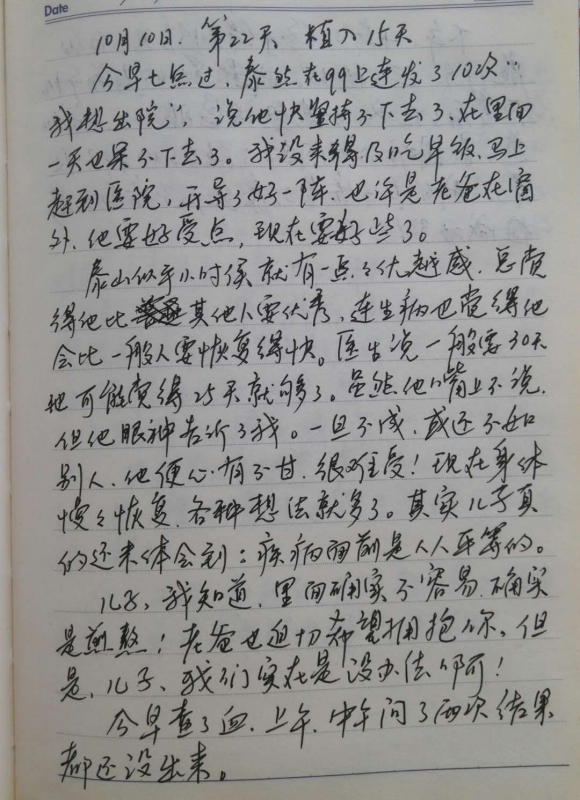 Date
10月10日. 第22天 植入15天
今早七点过, 泰然在99上连发了10次“
我想出院”, 说他快坚持不下去了、在里面
一天也呆不下去了。我没来得及吃早饭、马上
赶到医院, 开导了好一阵. 也许是老爸在窗
外. 他要好受点, 现在要好些了。
泰山似乎小时候就有一点点优越感. 总觉
得他比其他人要优秀, 连生病也觉得他
会比一般人要恢复得快。医生说一般要30天
他可能觉得25天就够了。虽然他嘴上不说.
但他眼神告诉了我。一旦不成, 或还不如
别人. 他便心有不甘. 很难受! 现在身体
慢慢恢复. 各种想法就多了。其实儿子真
的还未体会到: 疾病面前是人人平等的。
儿子、我知道, 里面确实不容易. 确实
是煎熬; 老爸也迫切希望拥抱你、但
是、儿子、我们实在是没办法啊!
今早查了血. 上午. 中午问了两次结果
都还没出来。